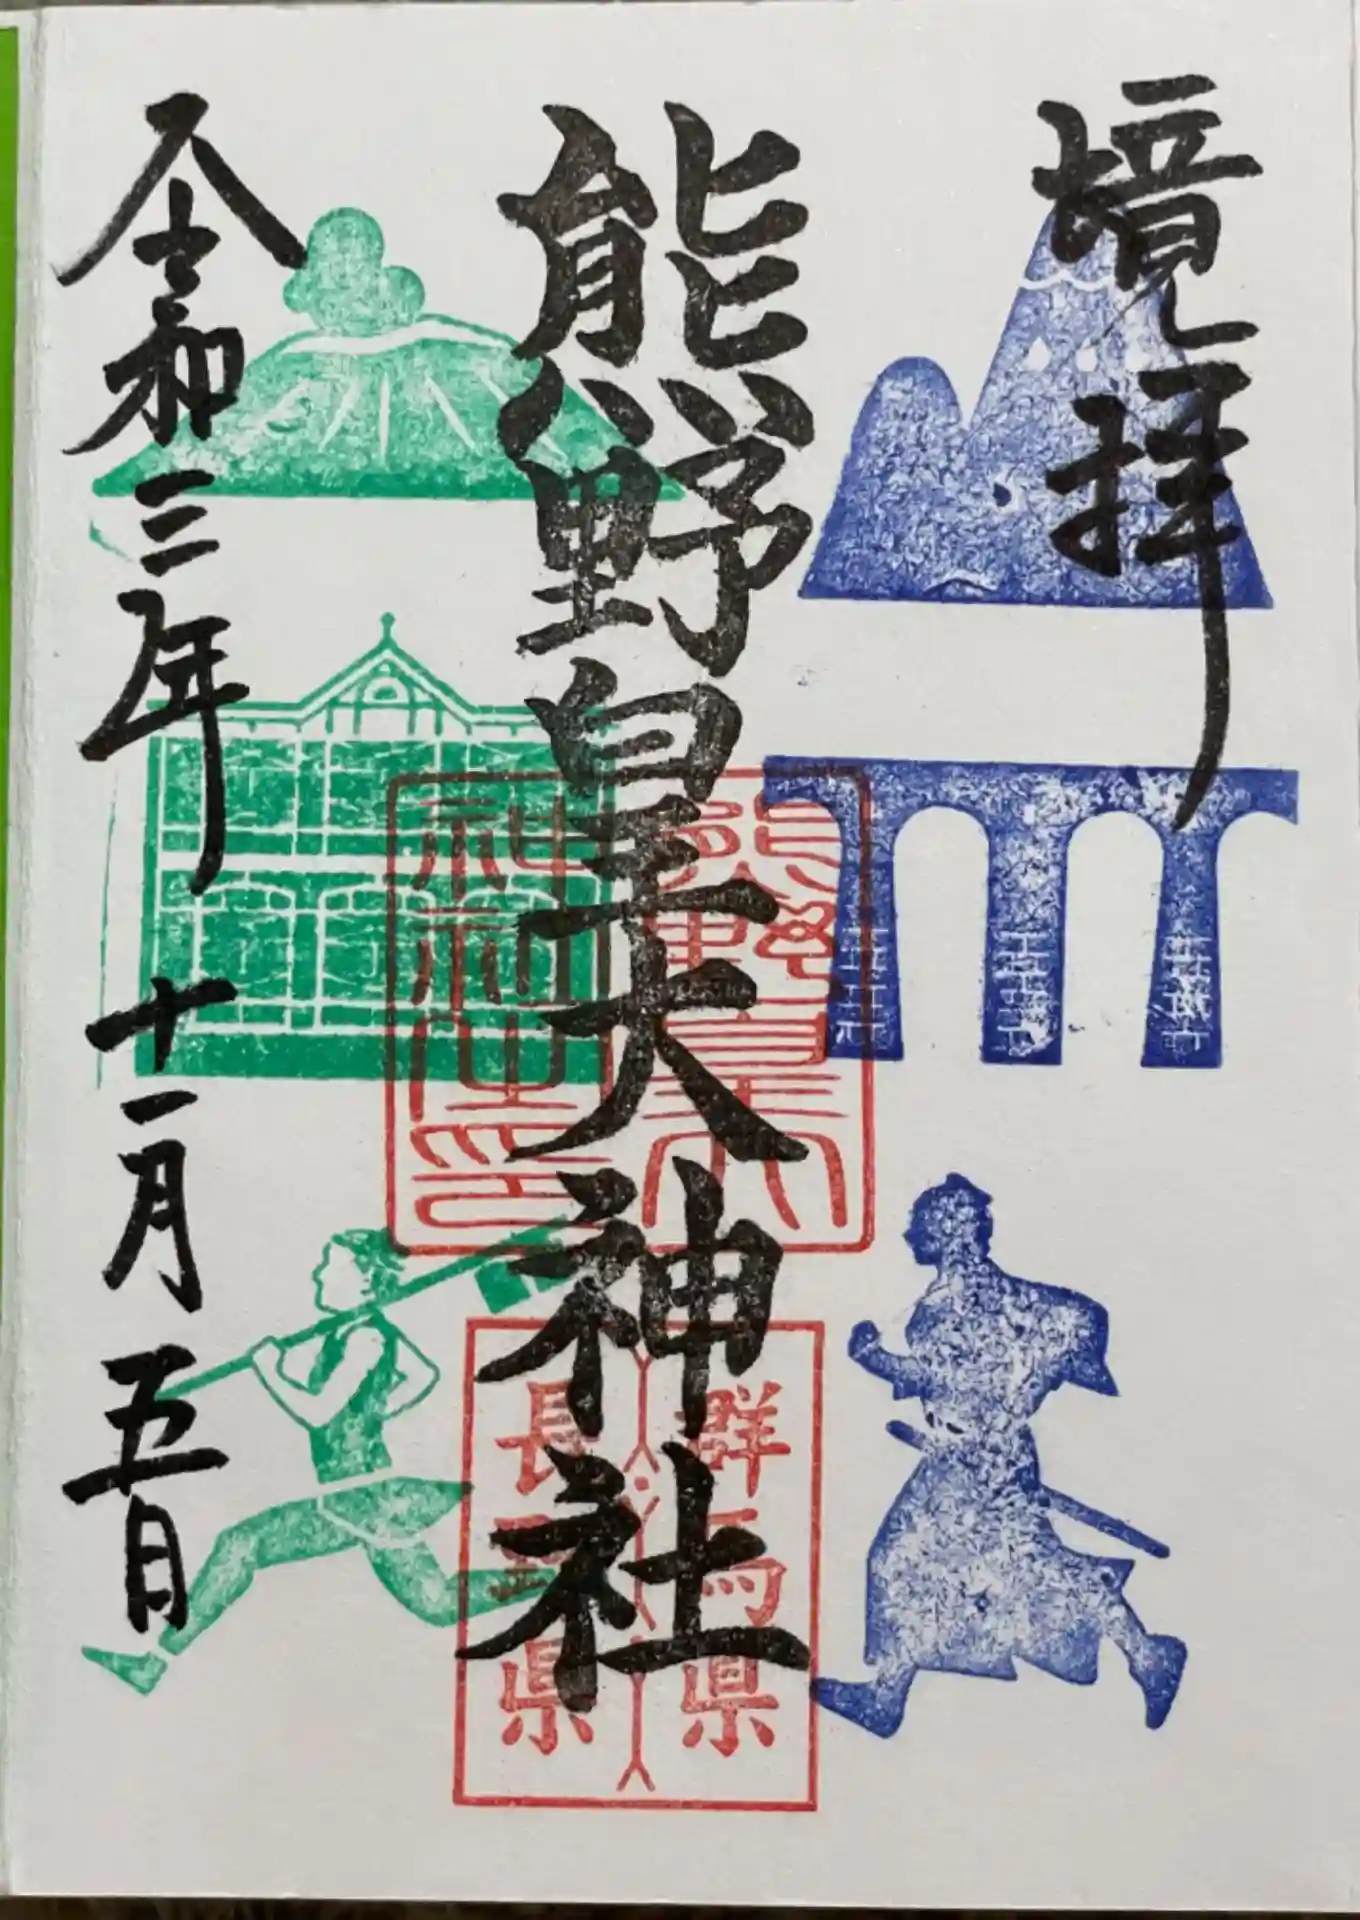 境拝
熊野皇大神社
令和三年十一月五日
熊野皇大
神社之印
群馬県
長野県